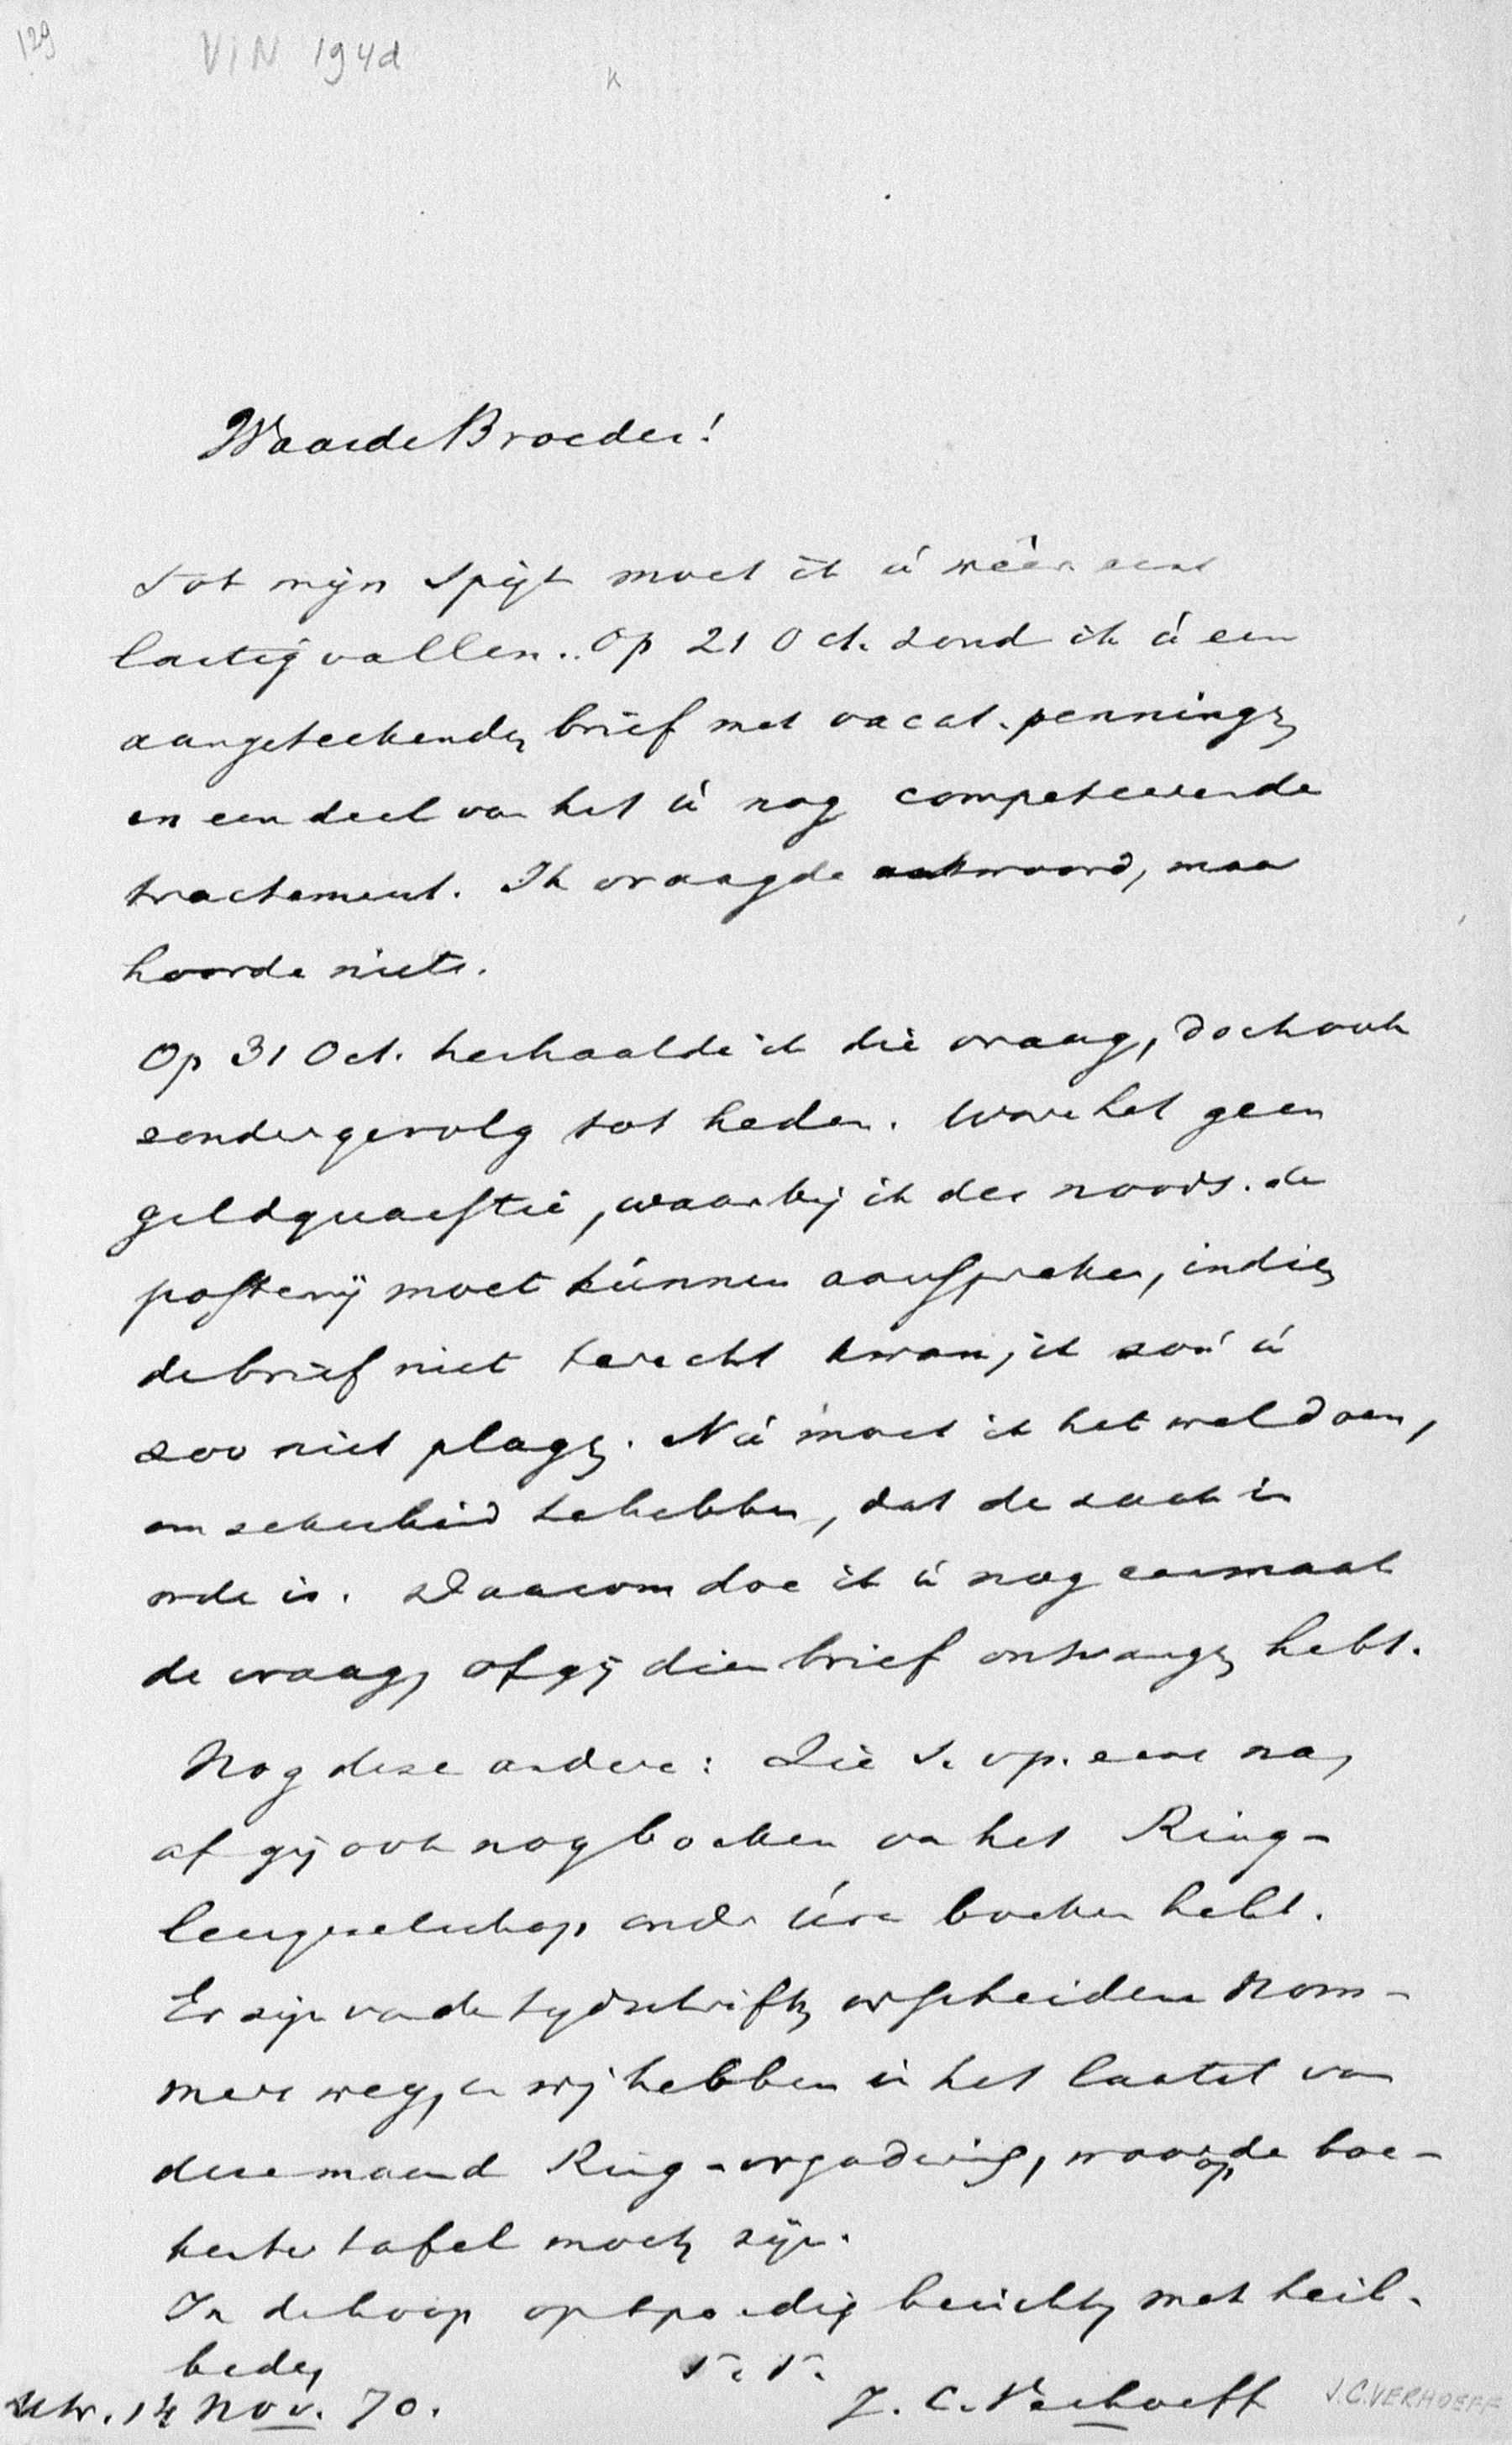 129
VIN 194d
k
Waarde Broeder!
Tot mijn spijt moet ik ú wéér eens
lastig vallen.. Op 21 Oct. zond ik ú een
aangeteekenden brief met vacat. penningen
en een deel van het ú nog competeerende
tractement. Ik vraagde antwoord, maar
hoorde niets.
Op 31 Oct. herhaalde ik die vraag, doch ook
zonder gevolg tot heden. Ware het geen
geldquaestie, waarbij ik des noods. de
posterij moet kúnnen aanspreken, indien
de brief niet terecht kwam, ik zoú ú
zoo niet plagen. Nú moet ik het wel doen,
om zekerheid te hebben, dat de zaak in
orde is. Daarom doe ik ú nog eenmaal
de vraag, of gij dien brief ontvangen hebt.
Nog deze andere: Zie s. op. eens na,
of gij ook nog boeken van het Ring-
leesgezelschap onder úwe boeken hebt.
Er zijn van de tydschriften verscheidene nom-
mers weg, en wij hebben in het laatst van
deze maand Ring-vergadering, waarop de boe-
ken ter tafel moeten zijn.
In de hoop op spoedig bericht, met heil-
bede,
t. t.
Utr. 14 Nov. 70.
J. C. Verhoeff
J.C. VERHOEFF